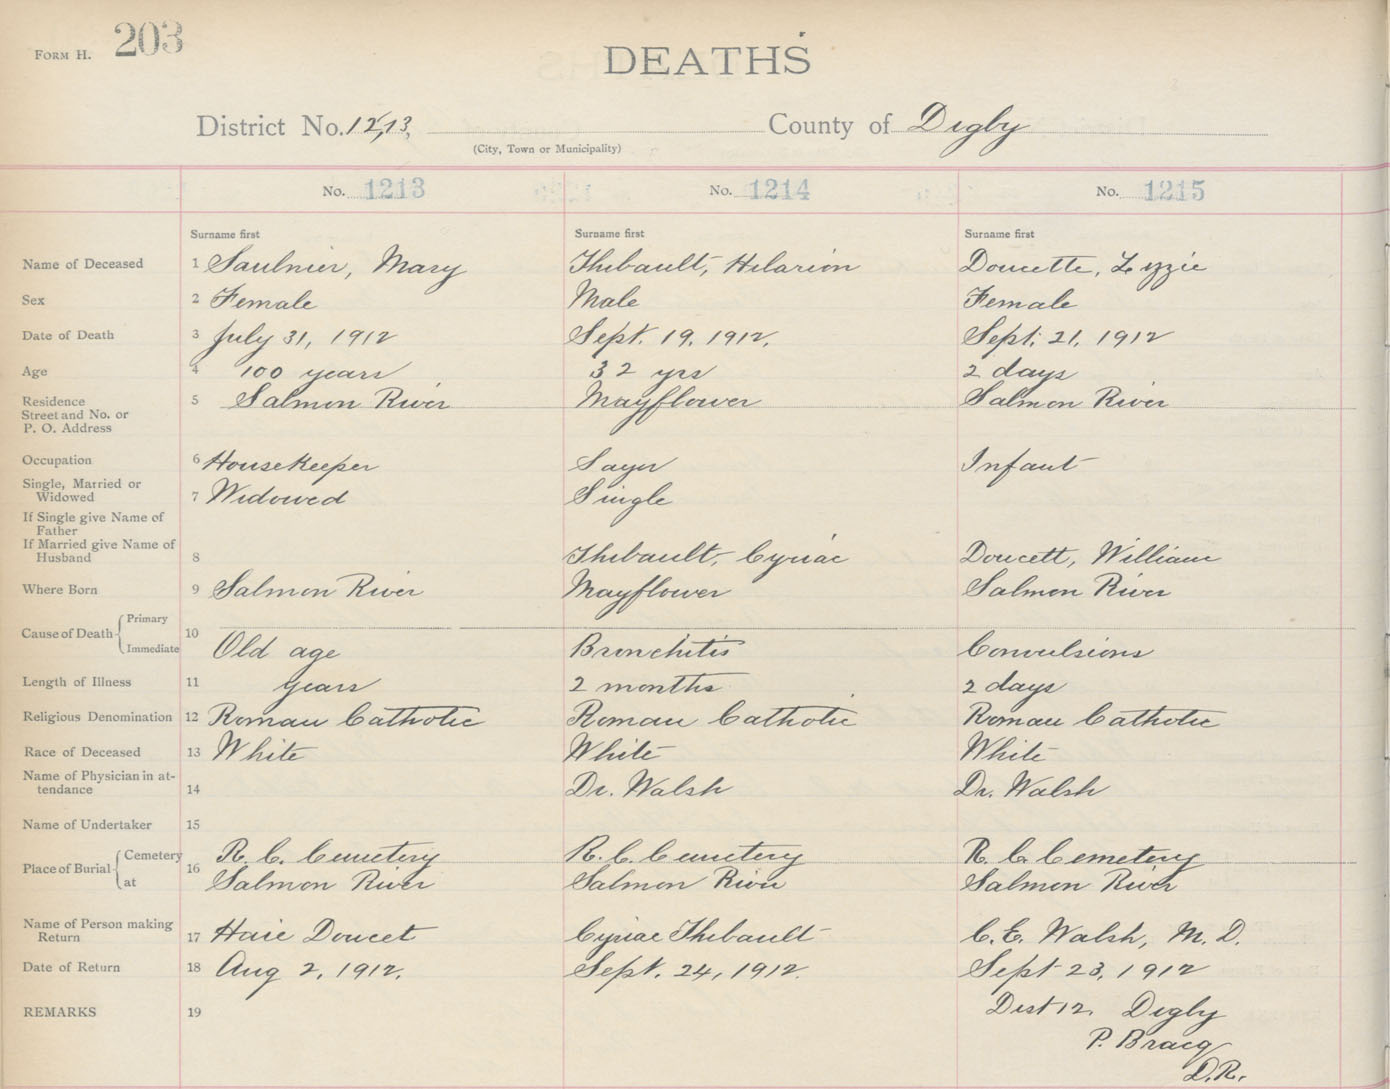 FORM H. 203
DEATHS
District No. 12,13, County of Digby
(City, Town or Municipality)
No. 1213 No. 1214 No. 1215
Surname first Surname first Surname first
Name of Deceased 1 Saulnier, Mary Thibault, Hilarion Doucette, Lizzie
Sex 2 Female Male Female
Date of Death 3 July 31, 1912 Sept. 19, 1912. Sept. 21, 1912
Age 4 100 years 32 yrs 2 days
Residence 5 Salmon River Mayflower Salmon River
Street and No. or
P. O. Address
Occupation 6 Housekeeper Infant
Single, Married or
Widowed 7 Widowed Single
If Single give Name of
Father
If Married give Name of
Husband 8 Thibault, Cyriac Doucett, William
Where Born 9 Salmon River Mayflower Salmon River
Cause of Death Primary
10
Immediate Old age Bronchitis Convulsions
Length of Illness 11 years 2 months 2 days
Religious Denomination 12 Roman Catholic Roman Catholic Roman Catholic
Race of Deceased 13 White White White
Name of Physician in at-
tendance 14 Dr. Walsh Dr. Walsh
Name of Undertaker 15
Place of Burial Cemetery 16 R. C. Cemetery R. C. Cemetery R. C. Cemetery
at Salmon River Salmon River Salmon River
Name of Person making
Return 17 Doucet Cyriac Thibault C. E. Walsh, M. D.
Date of Return 18 Aug 2, 1912. Sept. 24, 1912. Sept 23, 1912
REMARKS 19 Dist 12. Digby
P. Bracq
D.R.